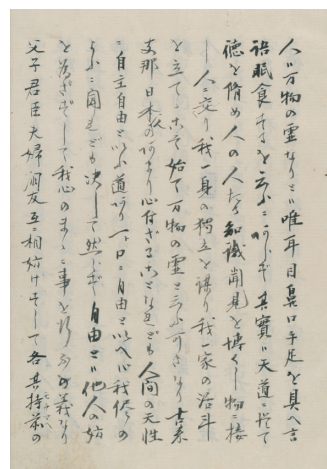 人ハ万物の霊なりとハ唯耳目鼻口手足を具へ言
語眠食するを云ふニあらず其實ハ天道ニ従て
徳を脩め人の人たる知識聞見を博くし物ニ接
し人ニ交り我一身の獨立を謀り我一家の活計
を立てゝこそ始て万物の霊と云ふ可きなり古来
支那日本人のあまり心付ざることなれども人間の天性
ニ自主自由と云ふ道あり一ト口ニ自由と云へハ我儘の
やうニ聞ゆれども決して然らず自由とハ他人の妨
を為さずして我心のまゝニ事を行ふの義なり
父子君臣夫婦朋友互ニ相妨けずして各其持前の